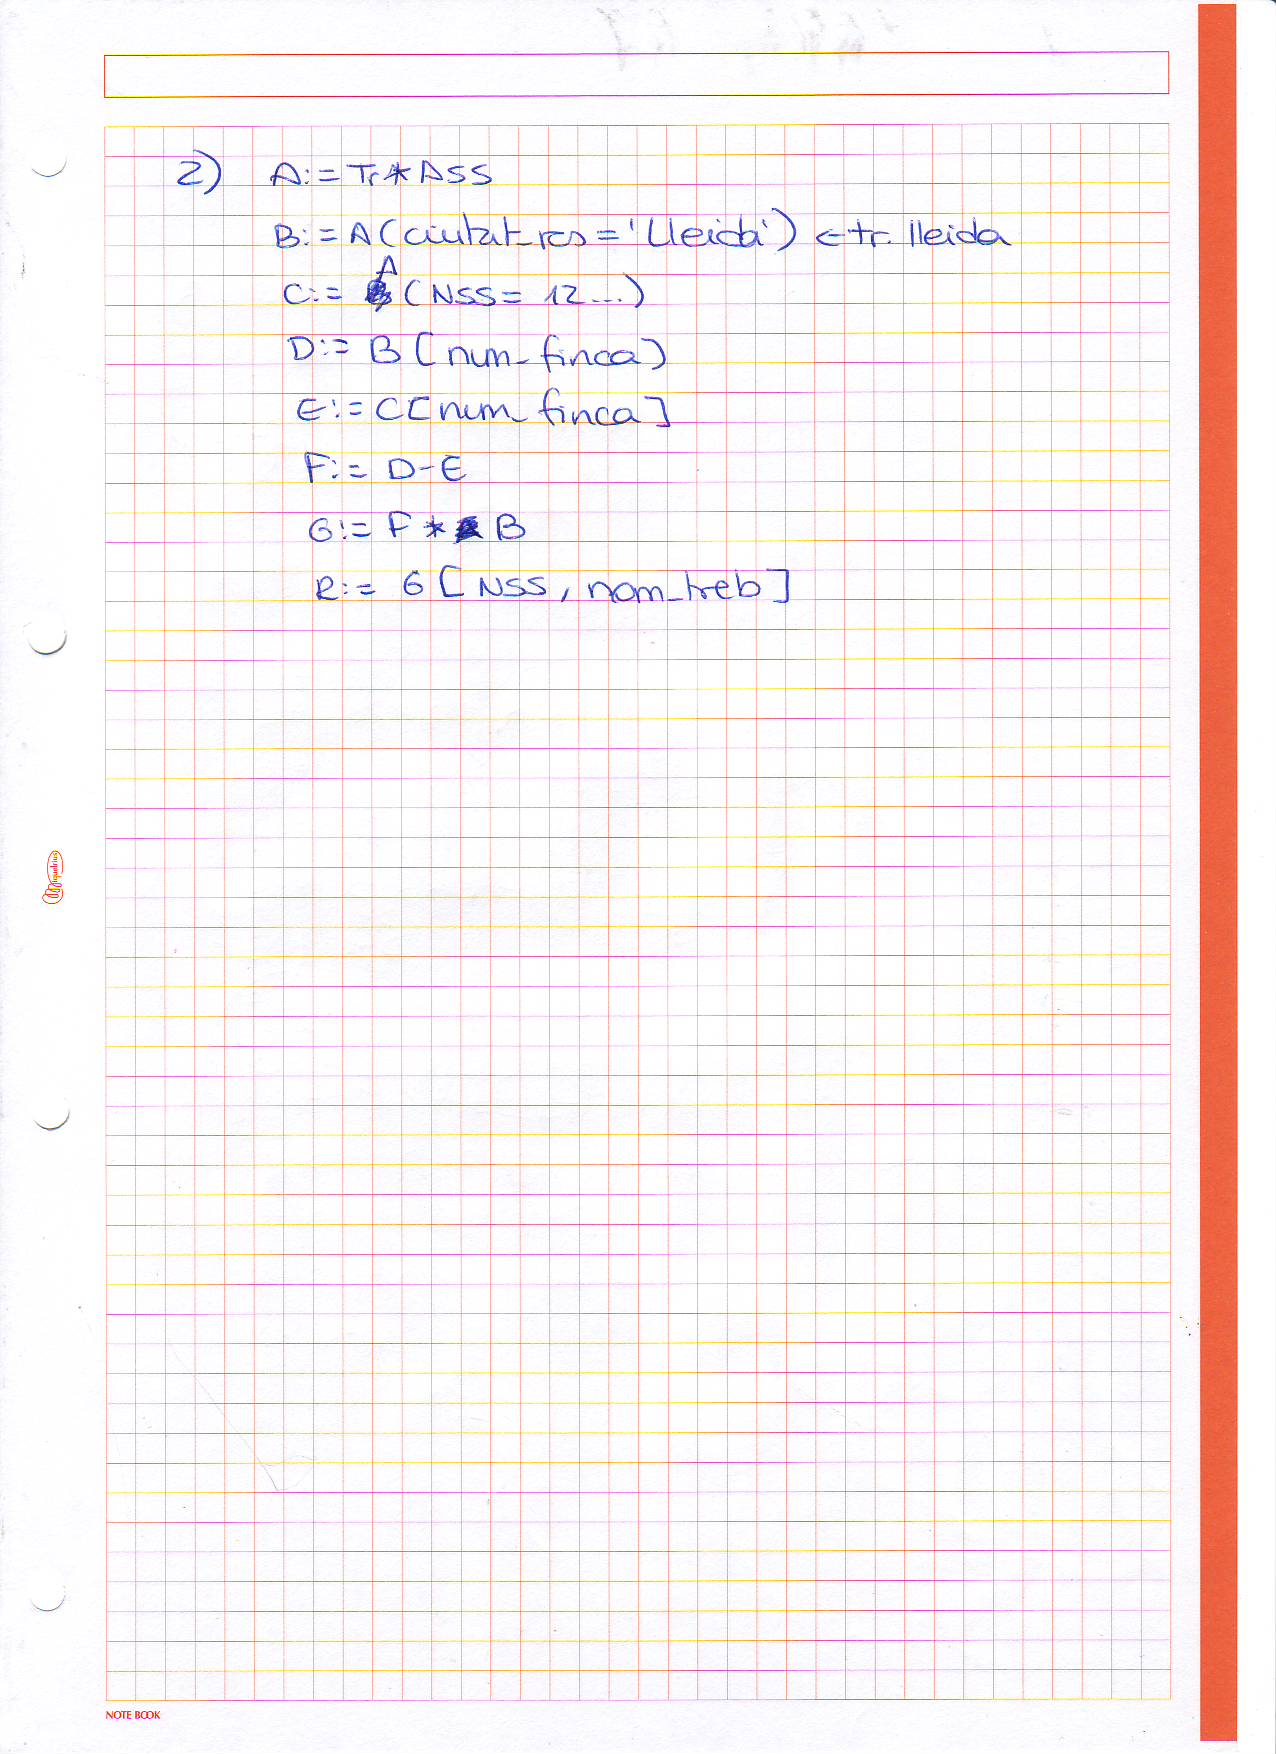 2) A:= Tr * Ass
B:= A (ciutat_res = 'Lleida') ← tr. lleida
C:= A (NSS = 12...)
D:= B [num_finca]
E:= C [num_finca]
F:= D - E
G:= F * B
R:= G [NSS, nom_treb]
Miquelrius
NOTE BOOK